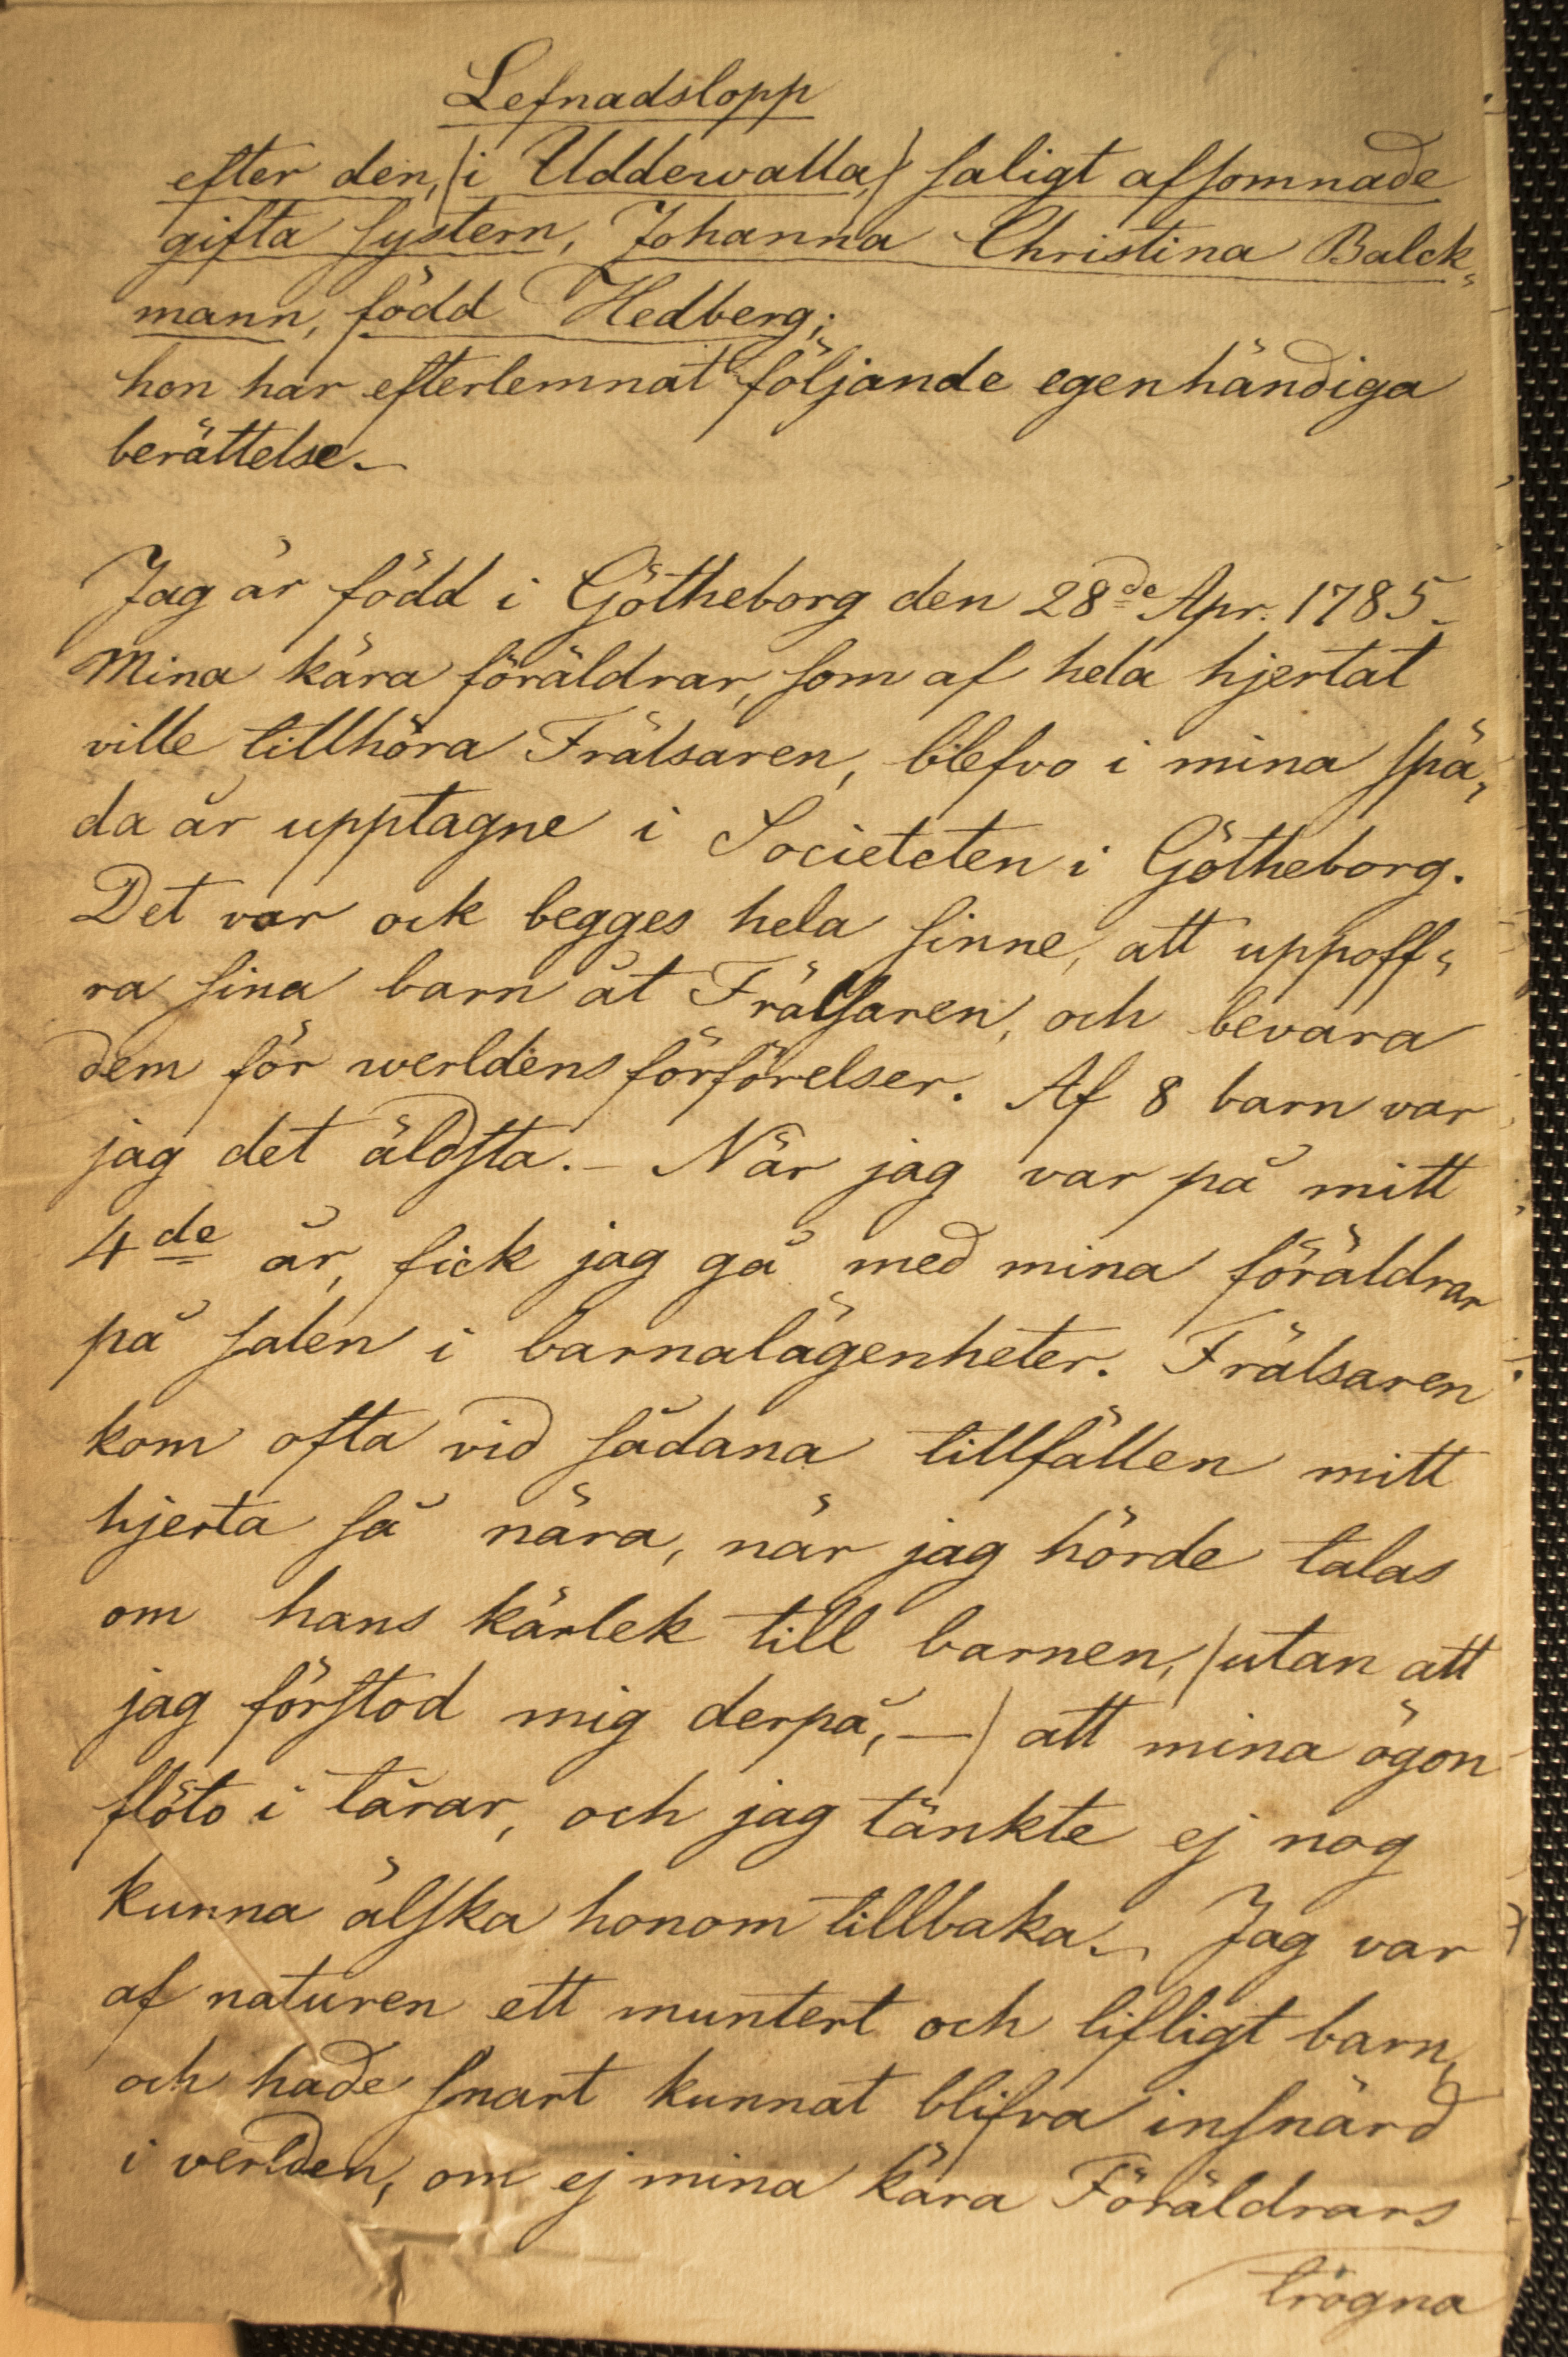 Lefnadslopp
efter den, (i Uddewalla,) saligt afsomnade
gifta systern, Johanna Christina Balck-
mann, född Hedberg;
hon har efterlemnat följande egenhändiga
berättelse.
Jag är född i Götheborg den 28de Apr. 1785.
Mina kära föräldrar, som af hela hjertat
ville tillhöra Frälsaren, blefvo i mina spä-
da år upptagne i Societeten i Götheborg.
Det var ock begges hela sinne, att uppoff-
ra sina barn åt Frälsaren, och bevara
dem för werldens förförelser. Af 8 barn var
jag det äldsta. - När jag var på mitt
4de år, fick jag gå med mina föräldrar
på salen i barnalägenheter. Frälsaren
kom ofta vid sådana tillfällen mitt
hjerta så nära, när jag hörde talas
om hans kärlek till barnen, (utan att
jag förstod mig derpå, —) att mina ögon
flöto i tårar, och jag tänkte ej nog
kunna älska honom tillbaka. Jag var
af naturen ett muntert och lifligt barn,
och hade snart kunnat blifva insnärd
i verlden, om ej mina kära Föräldrars
trägna